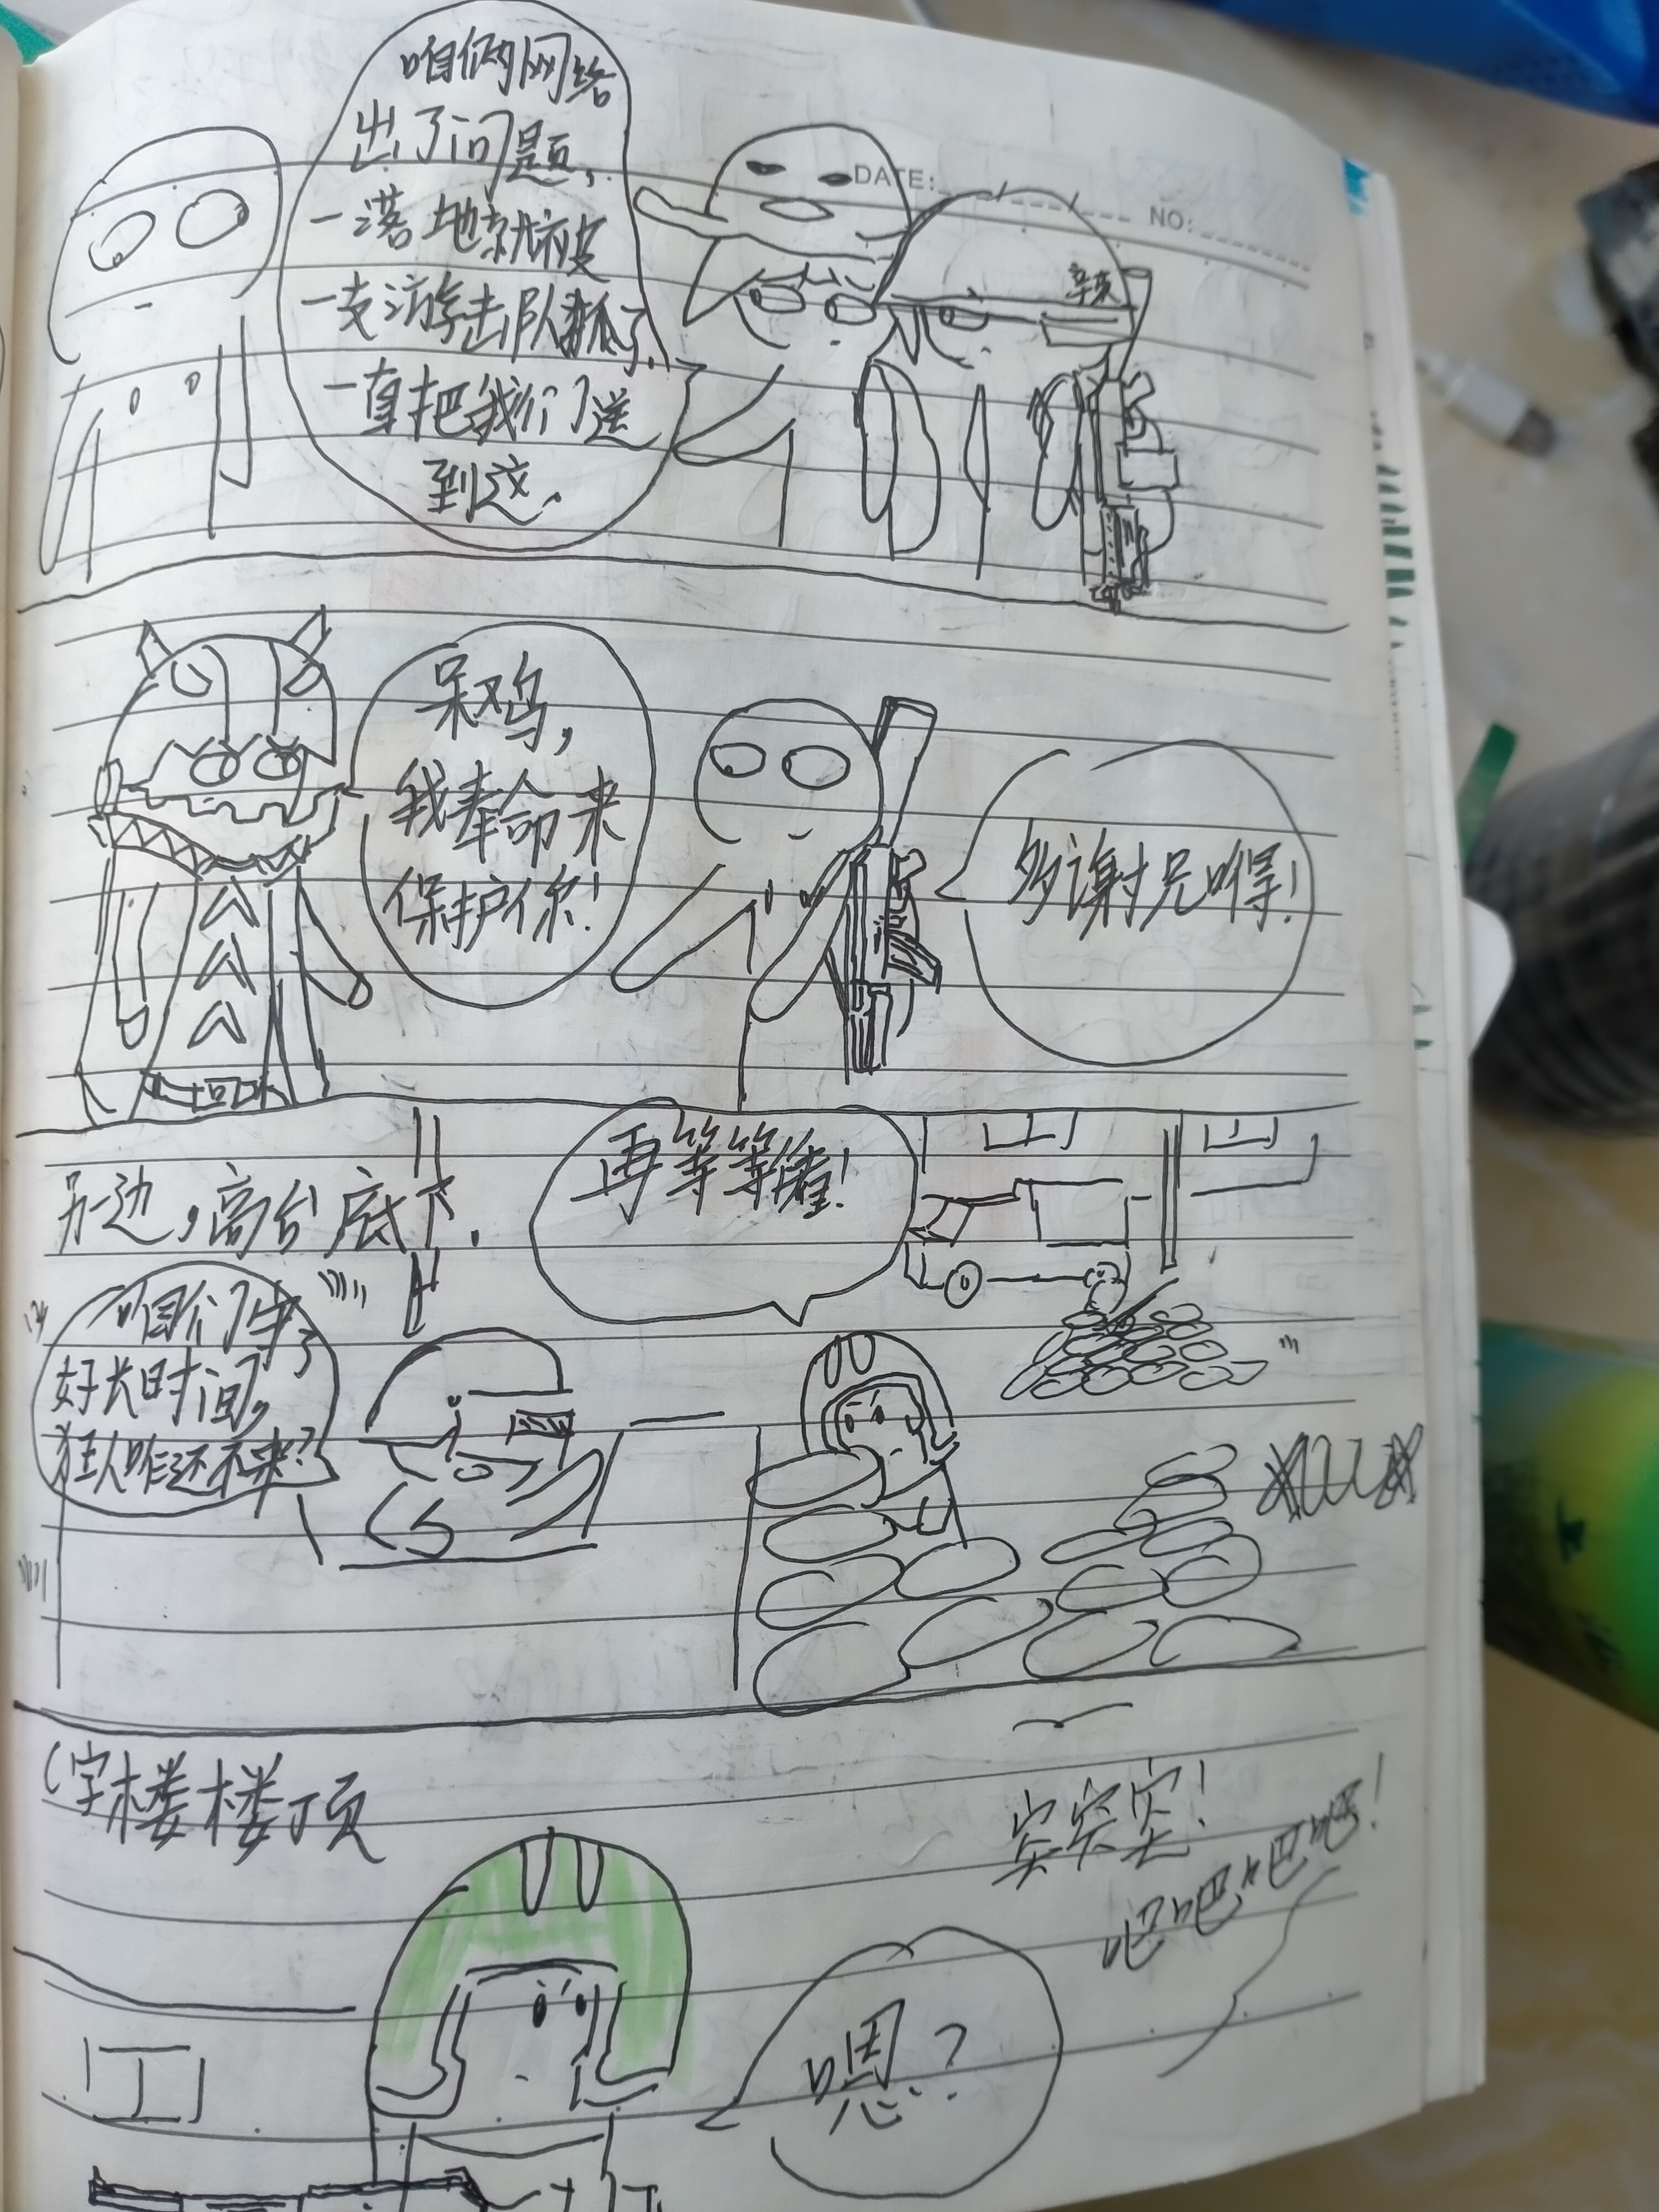 咱俩网络
出了问题,
一落地就被
一支游击队抓了,
一直把我们送
到这.
DATE:
NO:
呆鸡,
我奉命来
保护你!
多谢兄嘚!
另边,高台底下.
再等等
咱们牛了
好长时间,
狂人咋还不来?
C字楼楼顶
突突突!
吧吧吧吧!
嗯?